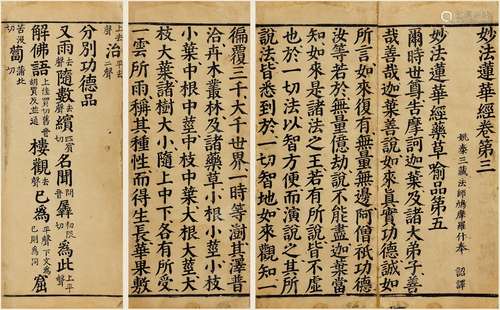 妙法蓮華經卷第三
姚秦三藏法師鳩摩羅什奉 詔譯
妙法蓮華經藥草喻品第五
爾時世尊告摩訶迦葉及諸大弟子善
哉善哉迦葉善說如來真實功德誠如
所言如來復有無量無邊阿僧祇功德
汝等若於無量億劫說不能盡迦葉當
知如來是諸法之王若有所說皆不虛
也於一切法以智方便而演說之其所
說法皆悉到於一切智地如來觀知一
徧覆三千大千世界一時等澍其澤普
洽卉木叢林及諸藥草小根小莖小枝
小葉中根中莖中枝中葉大根大莖大
枝大葉諸樹大小隨上中下各有所受
一雲所雨稱其種性而得生長華果敷
上去聲 治 平去二聲
分別功德品
又雨 去聲 隨數 去聲 繽 匹賓切 名聞 問音 羼 初限切 為此 上平聲
解佛語 上佳買切舊音胡買反並通 樓觀 去聲 已為 平聲下文為已則為同 窟
苦沒切 蔔 蒲北切